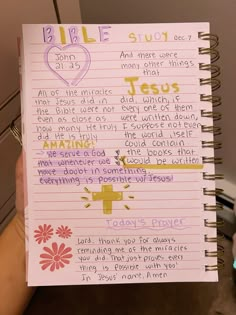 BIBLE STUDY Dec 7
John
21:25
And there were
many other things
that
Jesus
did, which, if
every one of them
were written down,
I suppose not even
the world itself
could contain
the books that
would be written
All of the miracles
that Jesus did in
the Bible were not
even as close as
how many He truly
did. He is truly
AMAZING!
We serve a God
that whenever we
have doubt in something,
everything is possible w/ Jesus!
Today's Prayer
Lord, thank you for always
reminding me of the miracles
you did. That just proves every
thing is possible with you!
In Jesus' name, Amen